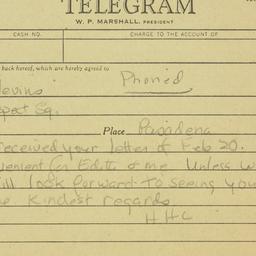 TELEGRAM
W. P. MARSHALL, PRESIDENT
CASH NO.
CHARGE TO THE ACCOUNT OF
back hereof, which are hereby agreed to
Phoned
Sq.
Place Pasadena
received your letter of Feb 20.
venient for Edith & me. Unless w
ill look forward to seeing you
e. Kindest regards
H H C